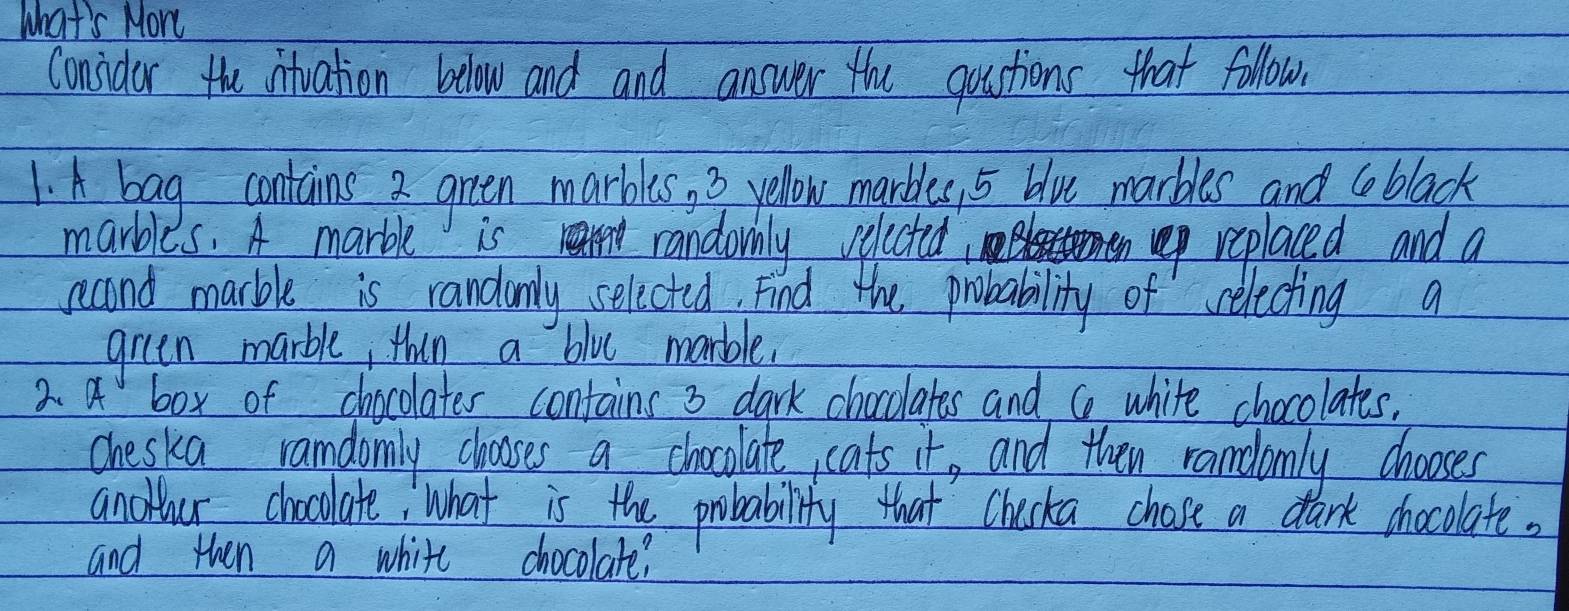 What's More
Consider the situation below and and answer the questions that follow.
1. A bag contains 2 green marbles, 3 yellow marbles, 5 blue marbles and 6 black
marbles. A marble is randomly selected, replaced and a
second marble is randomly selected. Find the probability of selecting a
green marble, then a blue marble.
2. A box of chocolates contains 3 dark chocolates and 6 white chocolates.
Cheska ramdomly chooses a chocolate, eats it, and then randomly chooses
another chocolate. What is the probability that Cheska chose a dark chocolate,
and then a white chocolate?